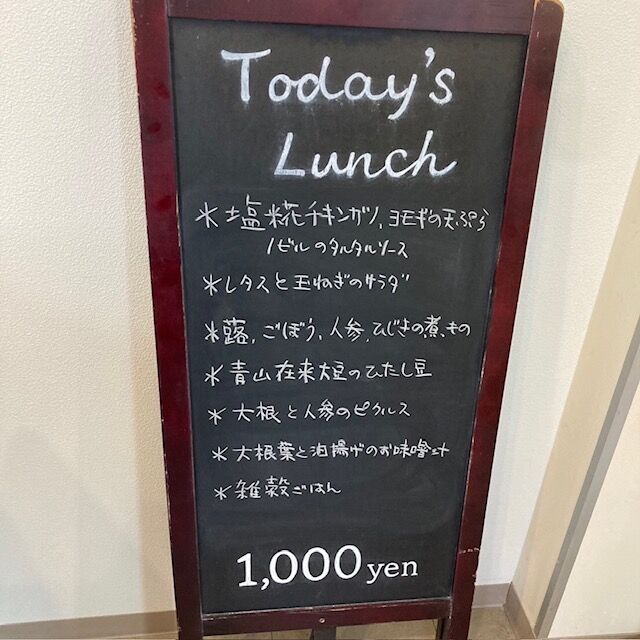 Today's
Lunch
*塩糀チキンカツ、ヨモギの天ぷら
ノビルのタルタルソース
*レタスと玉ねぎのサラダ
*蕗、ごぼう、人参、ひじきの煮もの
*青山在来大豆のひたし豆
*大根と人参のピクルス
*大根葉と油揚げのお味噌汁
*雑穀ごはん
1,000 yen